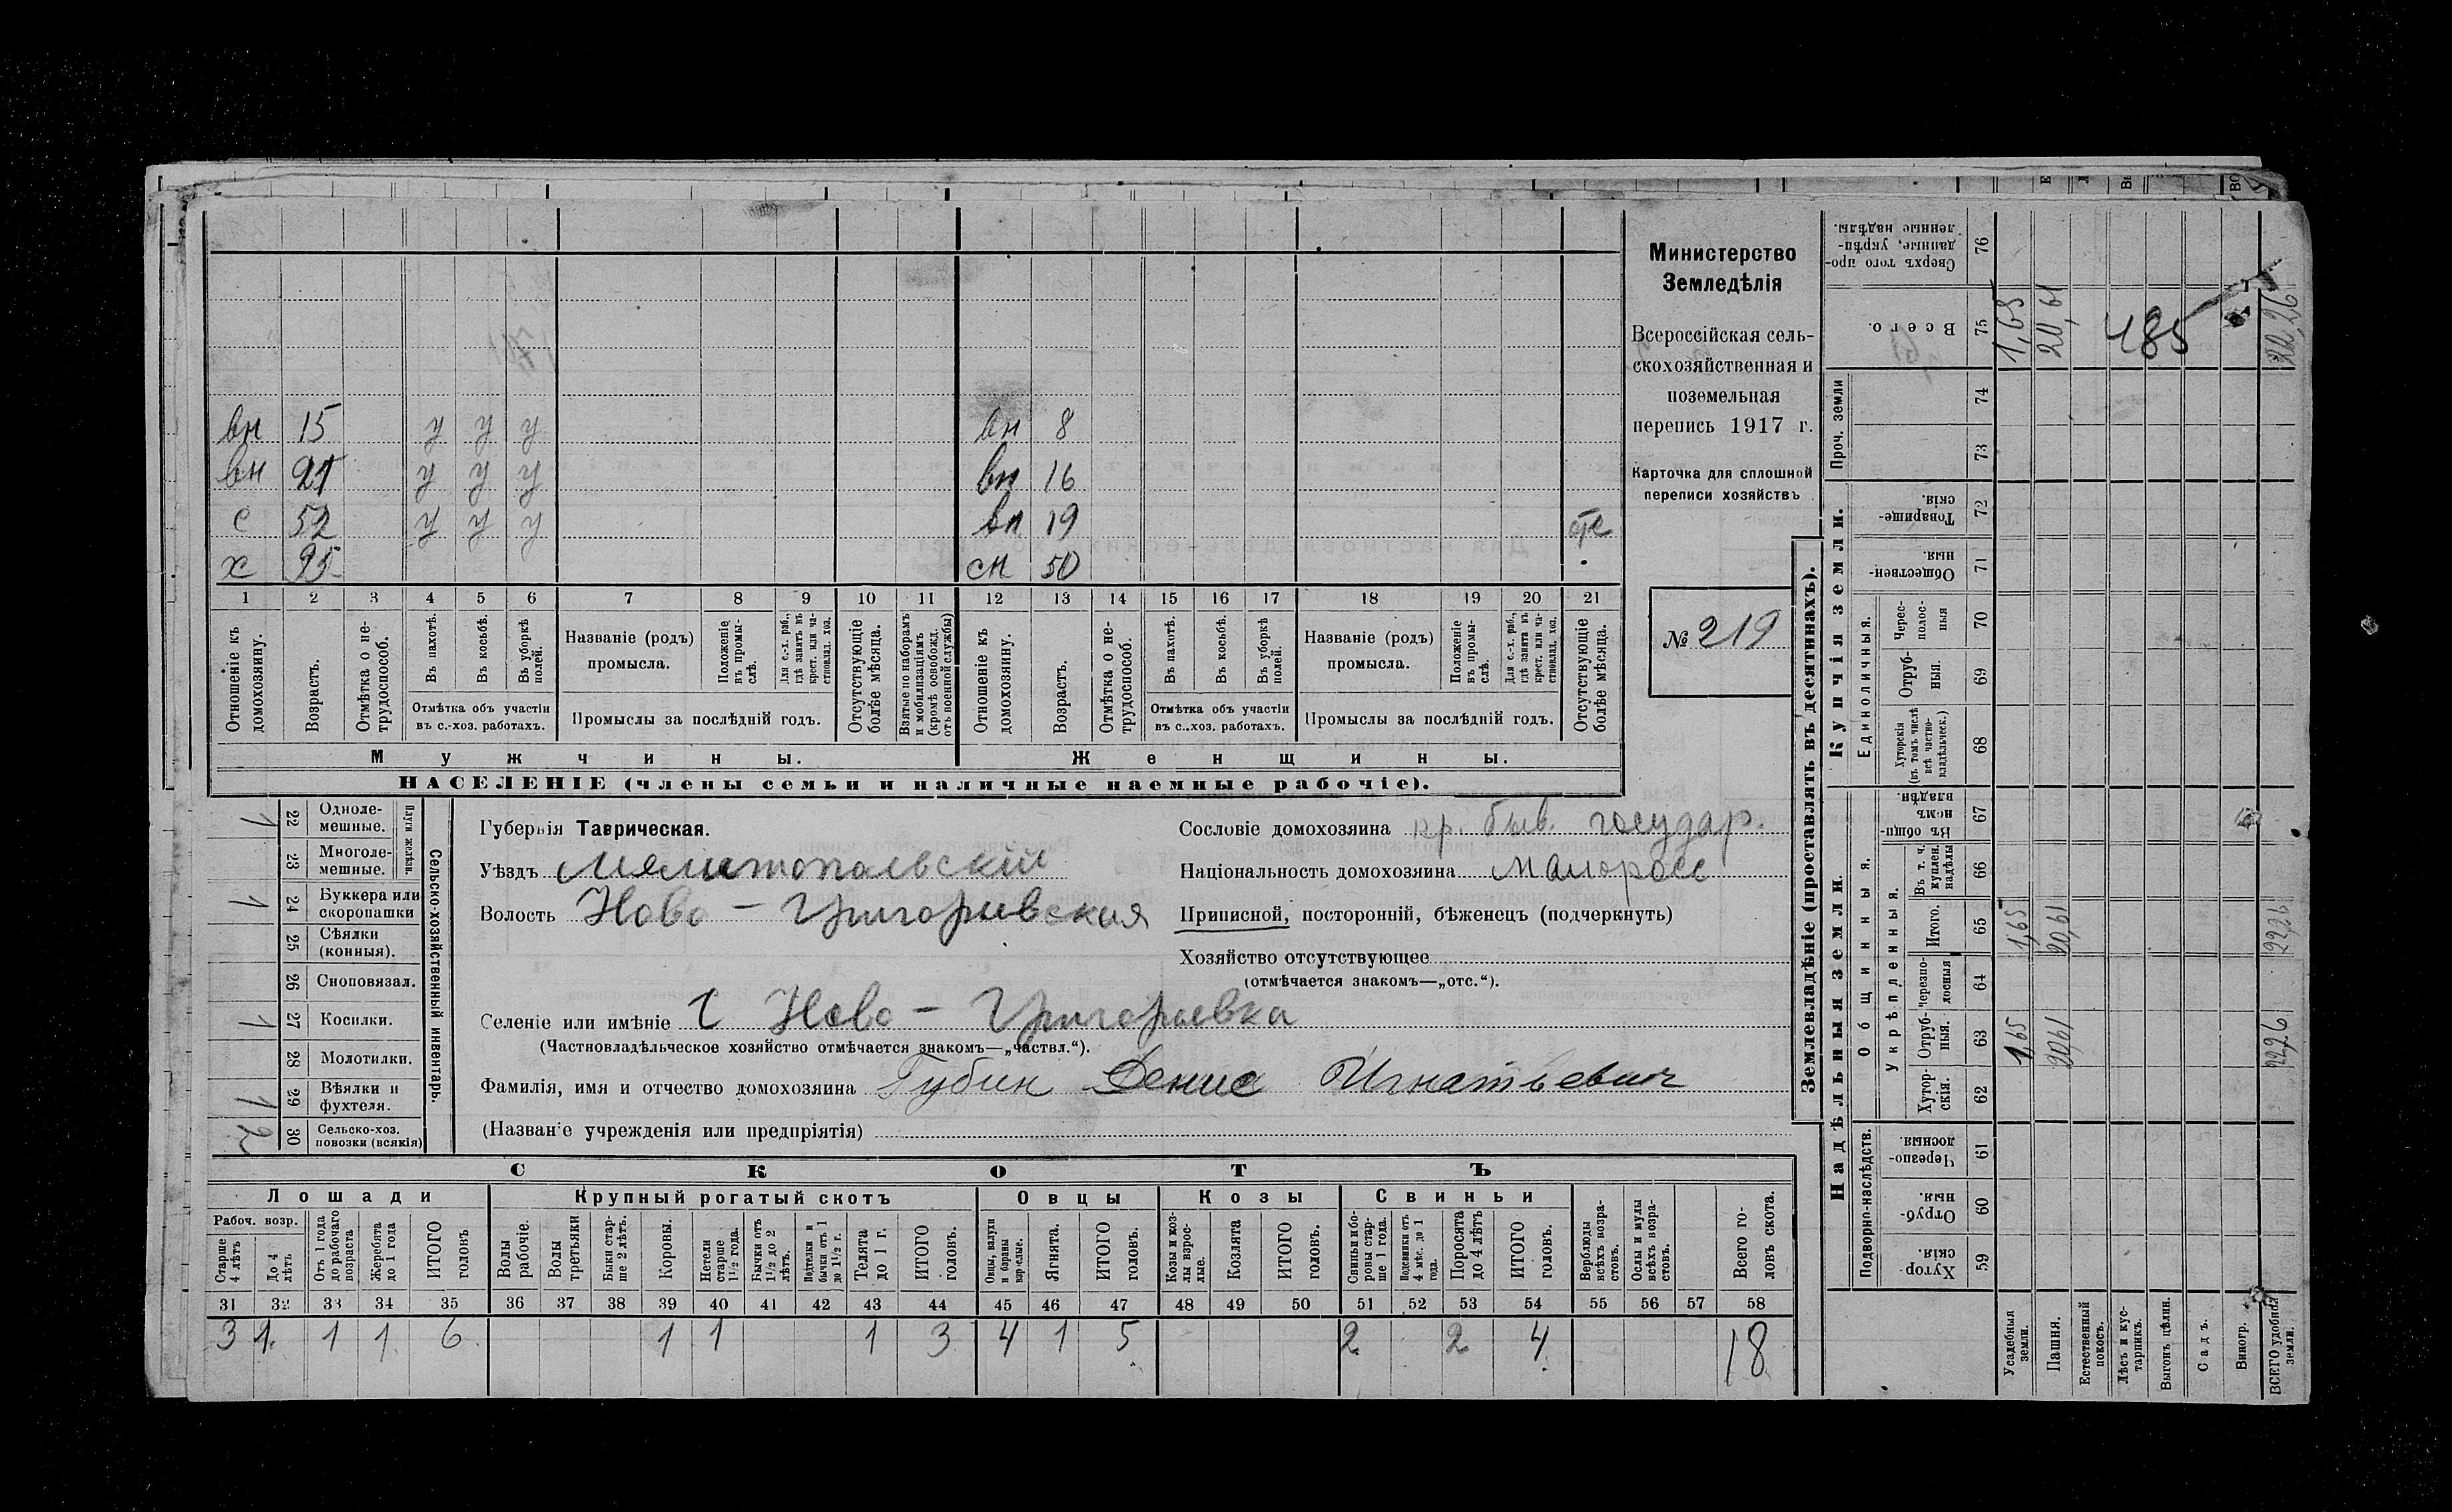 вн 15 у у у вн 8
вн 21 у у у вн 16
с 52 у у у вн 19 отс
х 95 сн 50
1 2 3 4 5 6 7 8 9 10 11 12 13 14 15 16 17 18 19 20 21
Отношеніе къ домохозяину.
Возрастъ.
Отмѣтка о нетрудоспособ.
Въ пахотѣ.
Въ косьбѣ.
Въ уборкѣ полей.
Отмѣтка объ участіи
въ с.-хоз. работахъ.
Названіе (родъ)
промысла.
Положеніе въ промыслѣ.
Для с.-х. раб., гдѣ занятъ въ крест. или частновлад. хоз.
Промыслы за послѣдній годъ.
Отсутствующіе болѣе мѣсяца.
Взятые по наборамъ и мобилизаціямъ (кромѣ освобожд. отъ военной службы)
Отношеніе къ домохозяину.
Возрастъ.
Отмѣтка о нетрудоспособ.
Въ пахотѣ.
Въ косьбѣ.
Въ уборкѣ полей.
Отмѣтка объ участіи
въ с.-хоз. работахъ.
Названіе (родъ)
промысла.
Положеніе въ промыслѣ.
Для с.-х. раб., гдѣ занята въ крест. или частновлад. хоз.
Промыслы за послѣдній годъ.
Отсутствующіе болѣе мѣсяца.
Мужчины. Женщины.
НАСЕЛЕНІЕ (члены семьи и наличные наемные рабочіе).
Министерство
Земледѣлія
Всероссійская сель-
скохозяйственная и
поземельная
перепись 1917 г.
Карточка для сплошной
переписи хозяйствъ
№ 219
Сельско-хозяйственный инвентарь.
Плуги желѣзн.
1 22 Одноле-
мешные.
23 Многоле-
мешные.
1 24 Буккера или
скоропашки
25 Сѣялки
(конныя).
26 Сноповязал.
1 27 Косилки.
28 Молотилки.
1 29 Вѣялки и
фухтеля.
2 30 Сельско-хоз.
повозки (всякія)
Губернія Таврическая.
Уѣздъ Мелитопольскій
Волость Ново - Григорьевская
Сословіе домохозяина кр. быв. государ.
Національность домохозяина малоросс
Приписной, посторонній, бѣженецъ (подчеркнуть)
Хозяйство отсутствующее
(отмѣчается знакомъ—„отс.“).
Селеніе или имѣніе с Ново - Григорьевка
(Частновладѣльческое хозяйство отмѣчается знакомъ—„частвл.“).
Фамилія, имя и отчество домохозяина Губин Денис Игнатьевич
(Названіе учрежденія или предпріятія)
СКОТЪ
Лошади Крупный рогатый скотъ Овцы Козы Свиньи
Рабоч. возр.
Старше 4 лѣтъ
До 4 лѣтъ
Отъ 1 года до рабочаго возраста
Жеребята до 1 года
ИТОГО головъ
Волы рабочіе.
Волы третьяки
Быки старше 2 лѣтъ.
Коровы.
Нетели старше 1½ года.
Бычки отъ 1½ до 2 лѣтъ.
Подтелки и бычки отъ 1 до 1½ г.
Телята до 1 г.
ИТОГО головъ.
Овцы, валухи и бараны взрослые.
Ягнята.
ИТОГО головъ.
Козы и козлы взрослые.
Козлята
ИТОГО головъ.
Свиньи и боровы старше 1 года.
Подсвинки отъ 4 мѣс. до 1 года.
Поросята до 4 лѣтъ
ИТОГО головъ.
Верблюды всѣхъ возрастовъ.
Ослы и мулы всѣхъ возрастовъ.
Всего головъ скота.
31 32 33 34 35 36 37 38 39 40 41 42 43 44 45 46 47 48 49 50 51 52 53 54 55 56 57 58
3 1 1 1 6 1 1 1 3 4 1 5 2 2 4 18
Землевладѣніе (проставлять въ десятинахъ).
Надѣльныя земли.
Подворно-наслѣдств.
Хуторскія. 59
Отрубныя. 60
Черезполосныя 61
Общинныя.
Укрѣпленныя.
Хуторскія. 62
Отрубныя. 63 1,65 20,61 22,26
Черезполосныя 64
Итого. 65 1,65 20,61 22,26
Въ т. ч. куплен. надѣлы 66
Въ общинномъ владѣн. 67
Купчія земли.
Единоличныя.
Хуторскія (въ томъ числѣ всѣ частновладѣльческ.) 68
Отрубныя. 69
Черезполосныя 70
Общественныя. 71
Товарищескія. 72
Проч. земли
73
74
Всего. 75 1,65 20,61 485 22,26
Сверхъ того проданные, укрѣпленные надѣлы. 76
Усадебныя земли.
Пашня.
Естественный покосъ.
Лѣсъ и кустарникъ.
Выгонъ цѣлин.
Садъ.
Виногр.
ВСЕГО удобной земли.